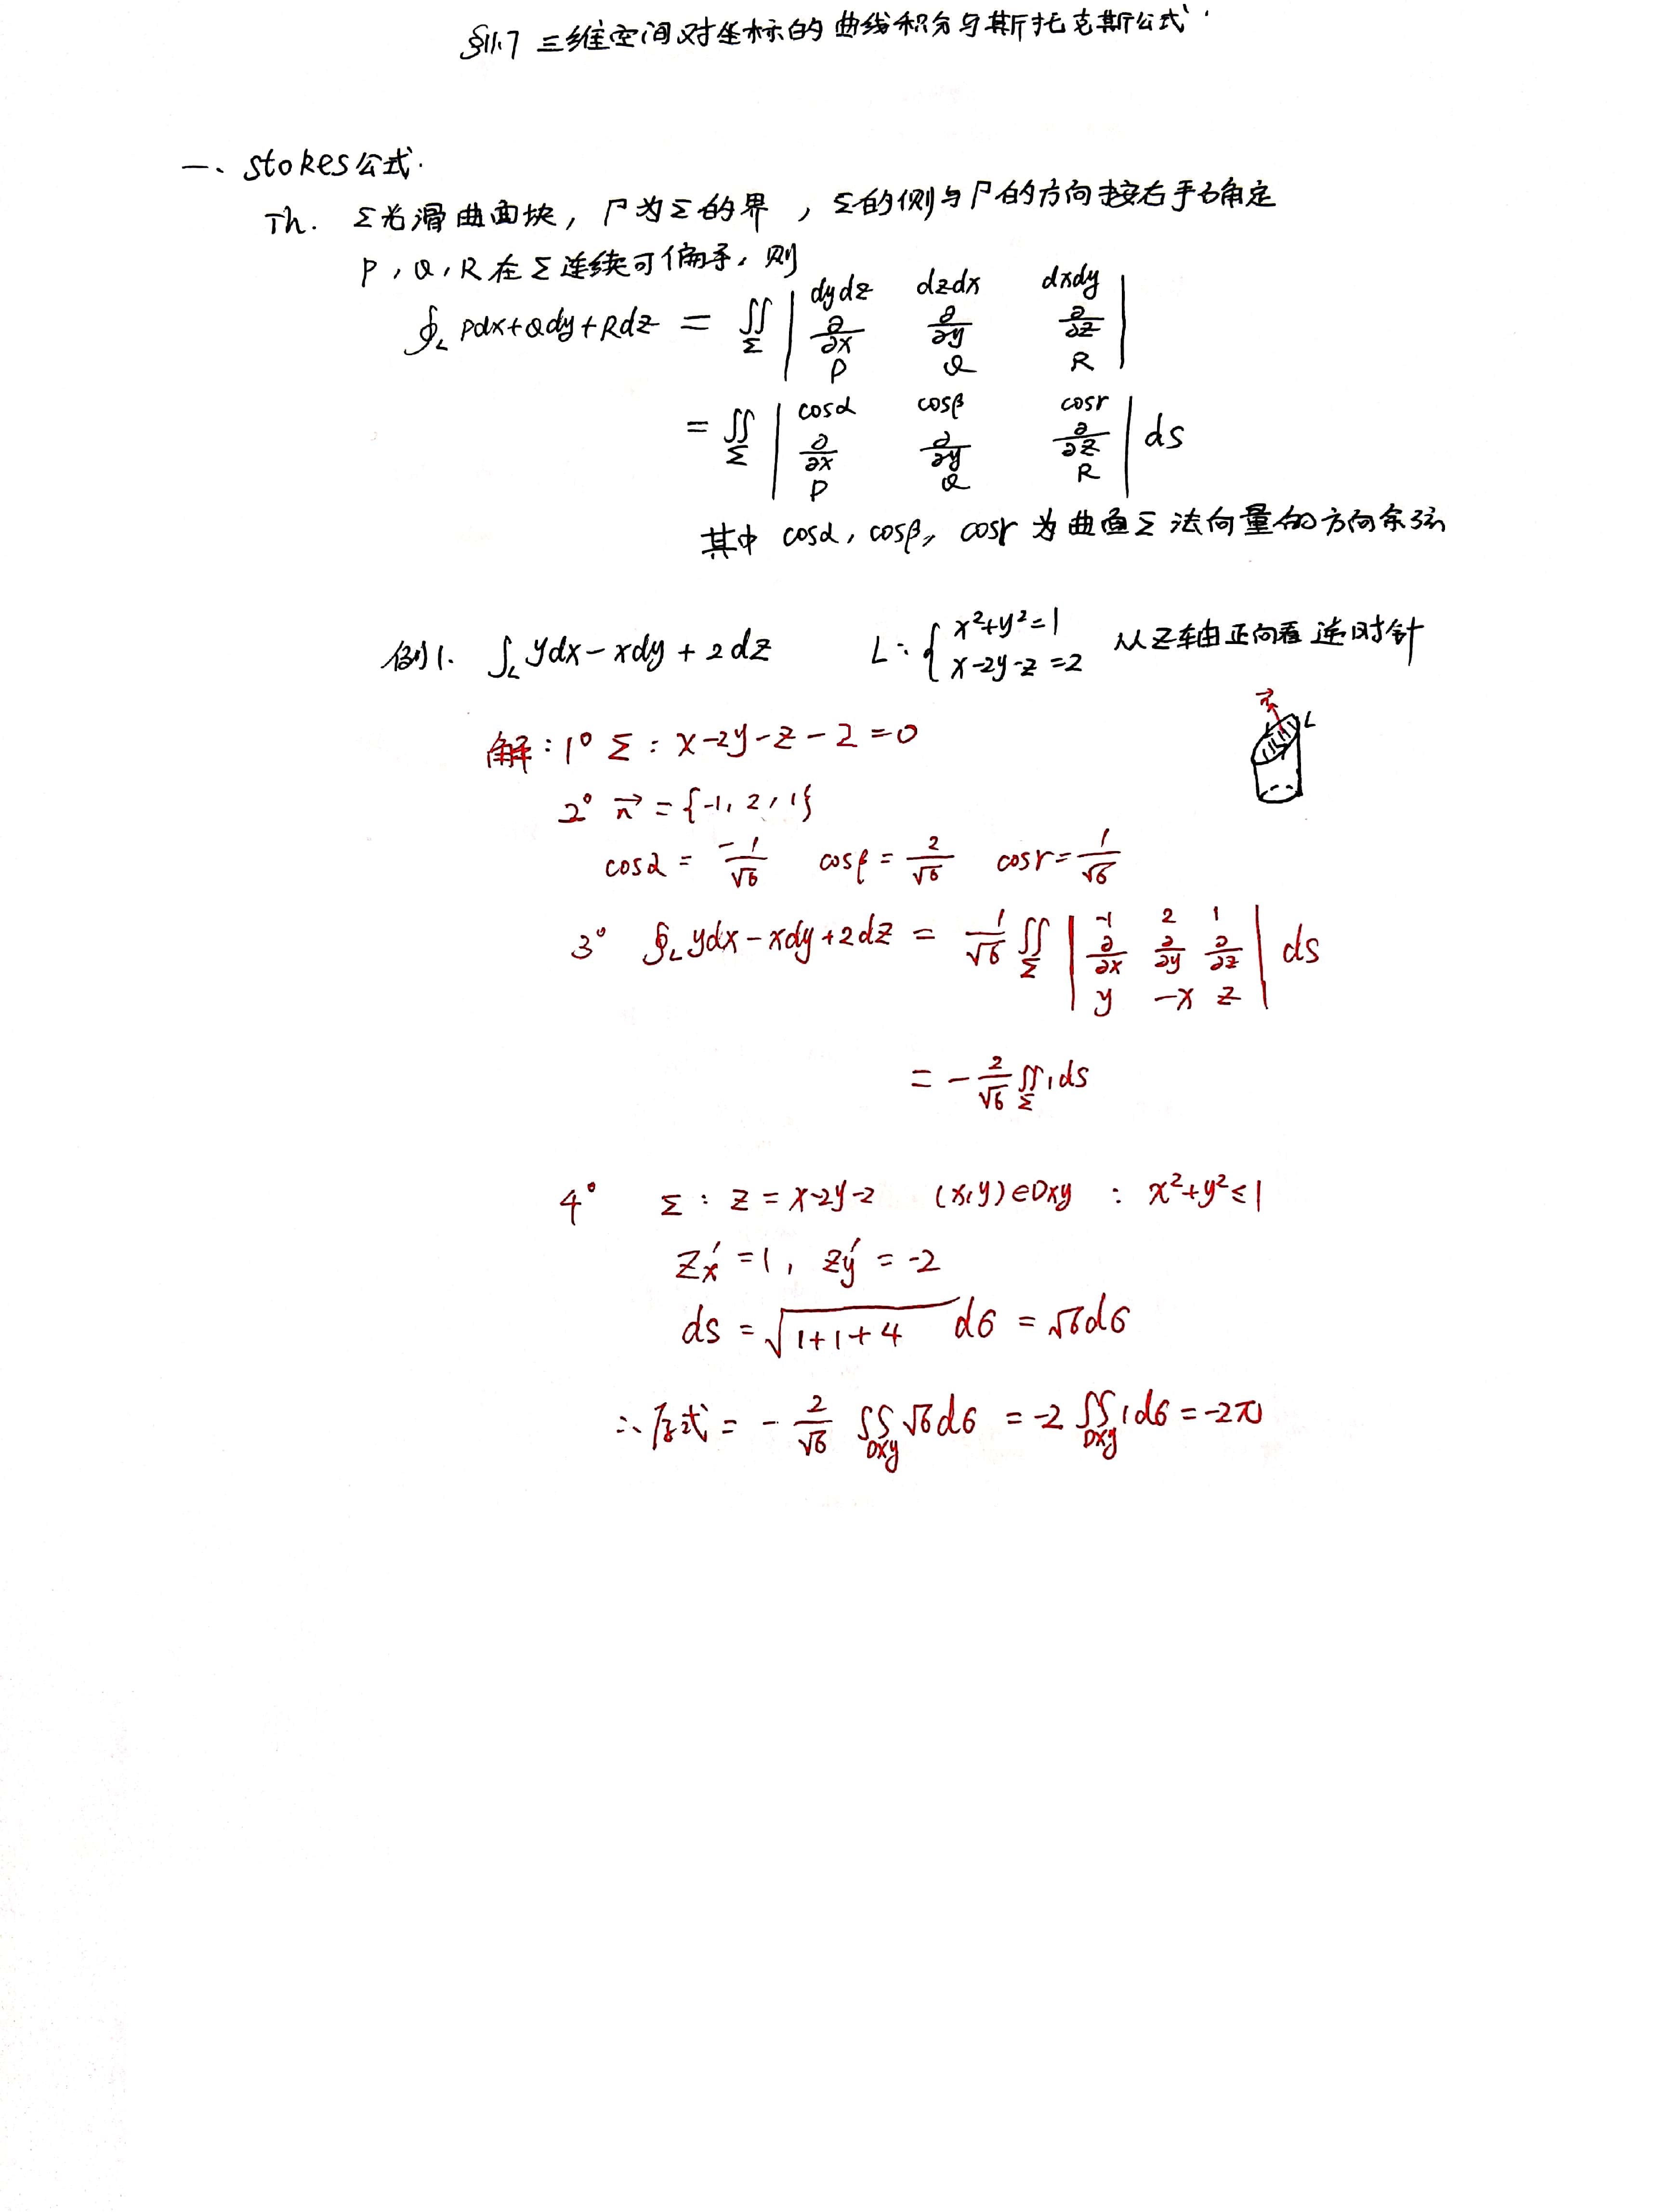 §11.7 三维空间对坐标的曲线积分与斯托克斯公式.
一、stokes公式.
Th. Σ光滑曲面块, Γ为Σ的界, Σ的侧与Γ的方向按右手确定
P, Q, R在Σ连续可偏导, 则
∮_L Pdx+Qdy+Rdz = ∬_Σ | dydz dzdx dxdy ; ∂/∂x ∂/∂y ∂/∂z ; P Q R |
= ∬_Σ | cosα cosβ cosr ; ∂/∂x ∂/∂y ∂/∂z ; P Q R | ds
其中 cosα, cosβ, cosr 为曲面Σ法向量的方向余弦
例1. ∫_L ydx-xdy+2dz L: { x²+y²=1 ; x-2y-z=2 从Z轴正向看逆时针
n⃗ L
解: 1° Σ: x-2y-z-2=0
2° n⃗ = {-1, 2, 1}
cosα = -1/√6 cosβ = 2/√6 cosr = 1/√6
3° ∮_L ydx-xdy+2dz = 1/√6 ∬_Σ | -1 2 1 ; ∂/∂x ∂/∂y ∂/∂z ; y -x z | ds
= -2/√6 ∬_Σ 1ds
4° Σ: z = x-2y-2 (x,y)∈Dxy : x²+y²≤1
Z'x = 1, Z'y = -2
ds = √(1+1+4) dσ = √6dσ
∴原式 = -2/√6 ∬_Dxy √6dσ = -2∬_Dxy 1dσ = -2π